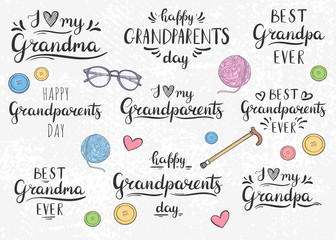 I my
Grandma
happy
GRANDPARENTS
day
BEST
Grandpa
EVER
HAPPY
Grandparents
DAY
I my
Grandparents
BEST
Grandparents
EVER
BEST
Grandma
EVER
happy
Grandparents
day
I my
Grandpa